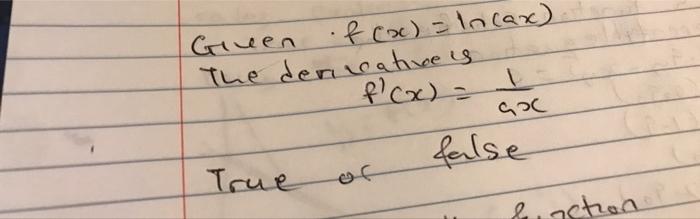 Given f(x) = ln(ax)
The derivative is
f'(x) = 1/ax
True or false
function